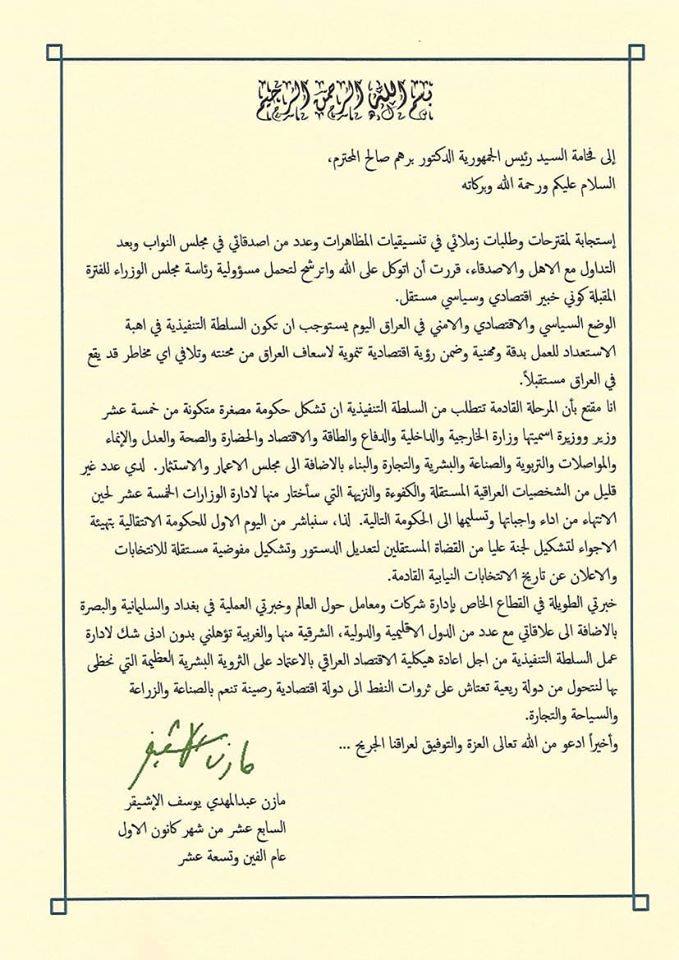 بسم الله الرحمن الرحيم
إلى فخامة السيد رئيس الجمهورية الدكتور برهم صالح المحترم،
السلام عليكم ورحمة الله وبركاته
إستجابة لمقترحات وطلبات زملائي في تنسيقيات المظاهرات وعدد من اصدقائي في مجلس النواب وبعد
التداول مع الاهل والاصدقاء، قررت أن اتوكل على الله واترشح لتحمل مسؤولية رئاسة مجلس الوزراء للفترة
المقبلة كوني خبير اقتصادي وسياسي مستقل.
الوضع السياسي والاقتصادي والامني في العراق اليوم يستوجب ان تكون السلطة التنفيذية في اهبة
الاستعداد للعمل بدقة ومهنية وضمن رؤية اقتصادية تنموية لاسعاف العراق من محنته وتلافي اي مخاطر قد يقع
في العراق مستقبلاً.
انا مقتع بأن المرحلة القادمة تتطلب من السلطة التنفيذية ان تشكل حكومة مصغرة متكونة من خمسة عشر
وزير ووزيرة اسميتها وزارة الخارجية والداخلية والدفاع والطاقة والاقتصاد والحضارة والصحة والعدل والإنماء
والمواصلات والتربوية والصناعة والبشرية والتجارة والبناء بالاضافة الى مجلس الاعمار والاستثمار. لدي عدد غير
قليل من الشخصيات العراقية المستقلة والكفوءة والنزيهة التي سأختار منها لادارة الوزارات الخمسة عشر لحين
الانتهاء من اداء واجباتها وتسليمها الى الحكومة التالية. لذا، سنباشر من اليوم الاول للحكومة الانتقالية بتهيئة
الاجواء لتشكيل لجنة عليا من القضاة المستقلين لتعديل الدستور وتشكيل مفوضية مستقلة للانتخابات
والاعلان عن تاريخ الانتخابات النيابية القادمة.
خبرتي الطويلة في القطاع الخاص بإدارة شركات ومعامل حول العالم وخبرتي العملية في بغداد والسليمانية والبصرة
بالاضافة الى علاقاتي مع عدد من الدول الاقليمية والدولية، الشرقية منها والغربية تؤهلني بدون ادنى شك لادارة
عمل السلطة التنفيذية من اجل اعادة هيكلية الاقتصاد العراقي بالاعتماد على الثروية البشرية العظيمة التي نحظى
بها لنتحول من دولة ريعية تعتاش على ثروات النفط الى دولة اقتصادية رصينة تنعم بالصناعة والزراعة
والسياحة والتجارة.
وأخيراً ادعو من الله تعالى العزة والتوفيق لعراقنا الجريح ...
مازن الاشيقر
مازن عبدالمهدي يوسف الإشيقر
السابع عشر من شهر كانون الاول
عام الفين وتسعة عشر